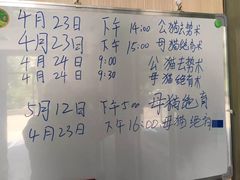 4月23日 下午14:00 公猫去势术
4月23日 下午15:00 母猫绝育术
4月24日 9:00 公猫去势术
4月24日 9:30 母猫绝育术
5月12日 下午5:00 母猫绝育
4月23日 下午16:00 母猫绝育